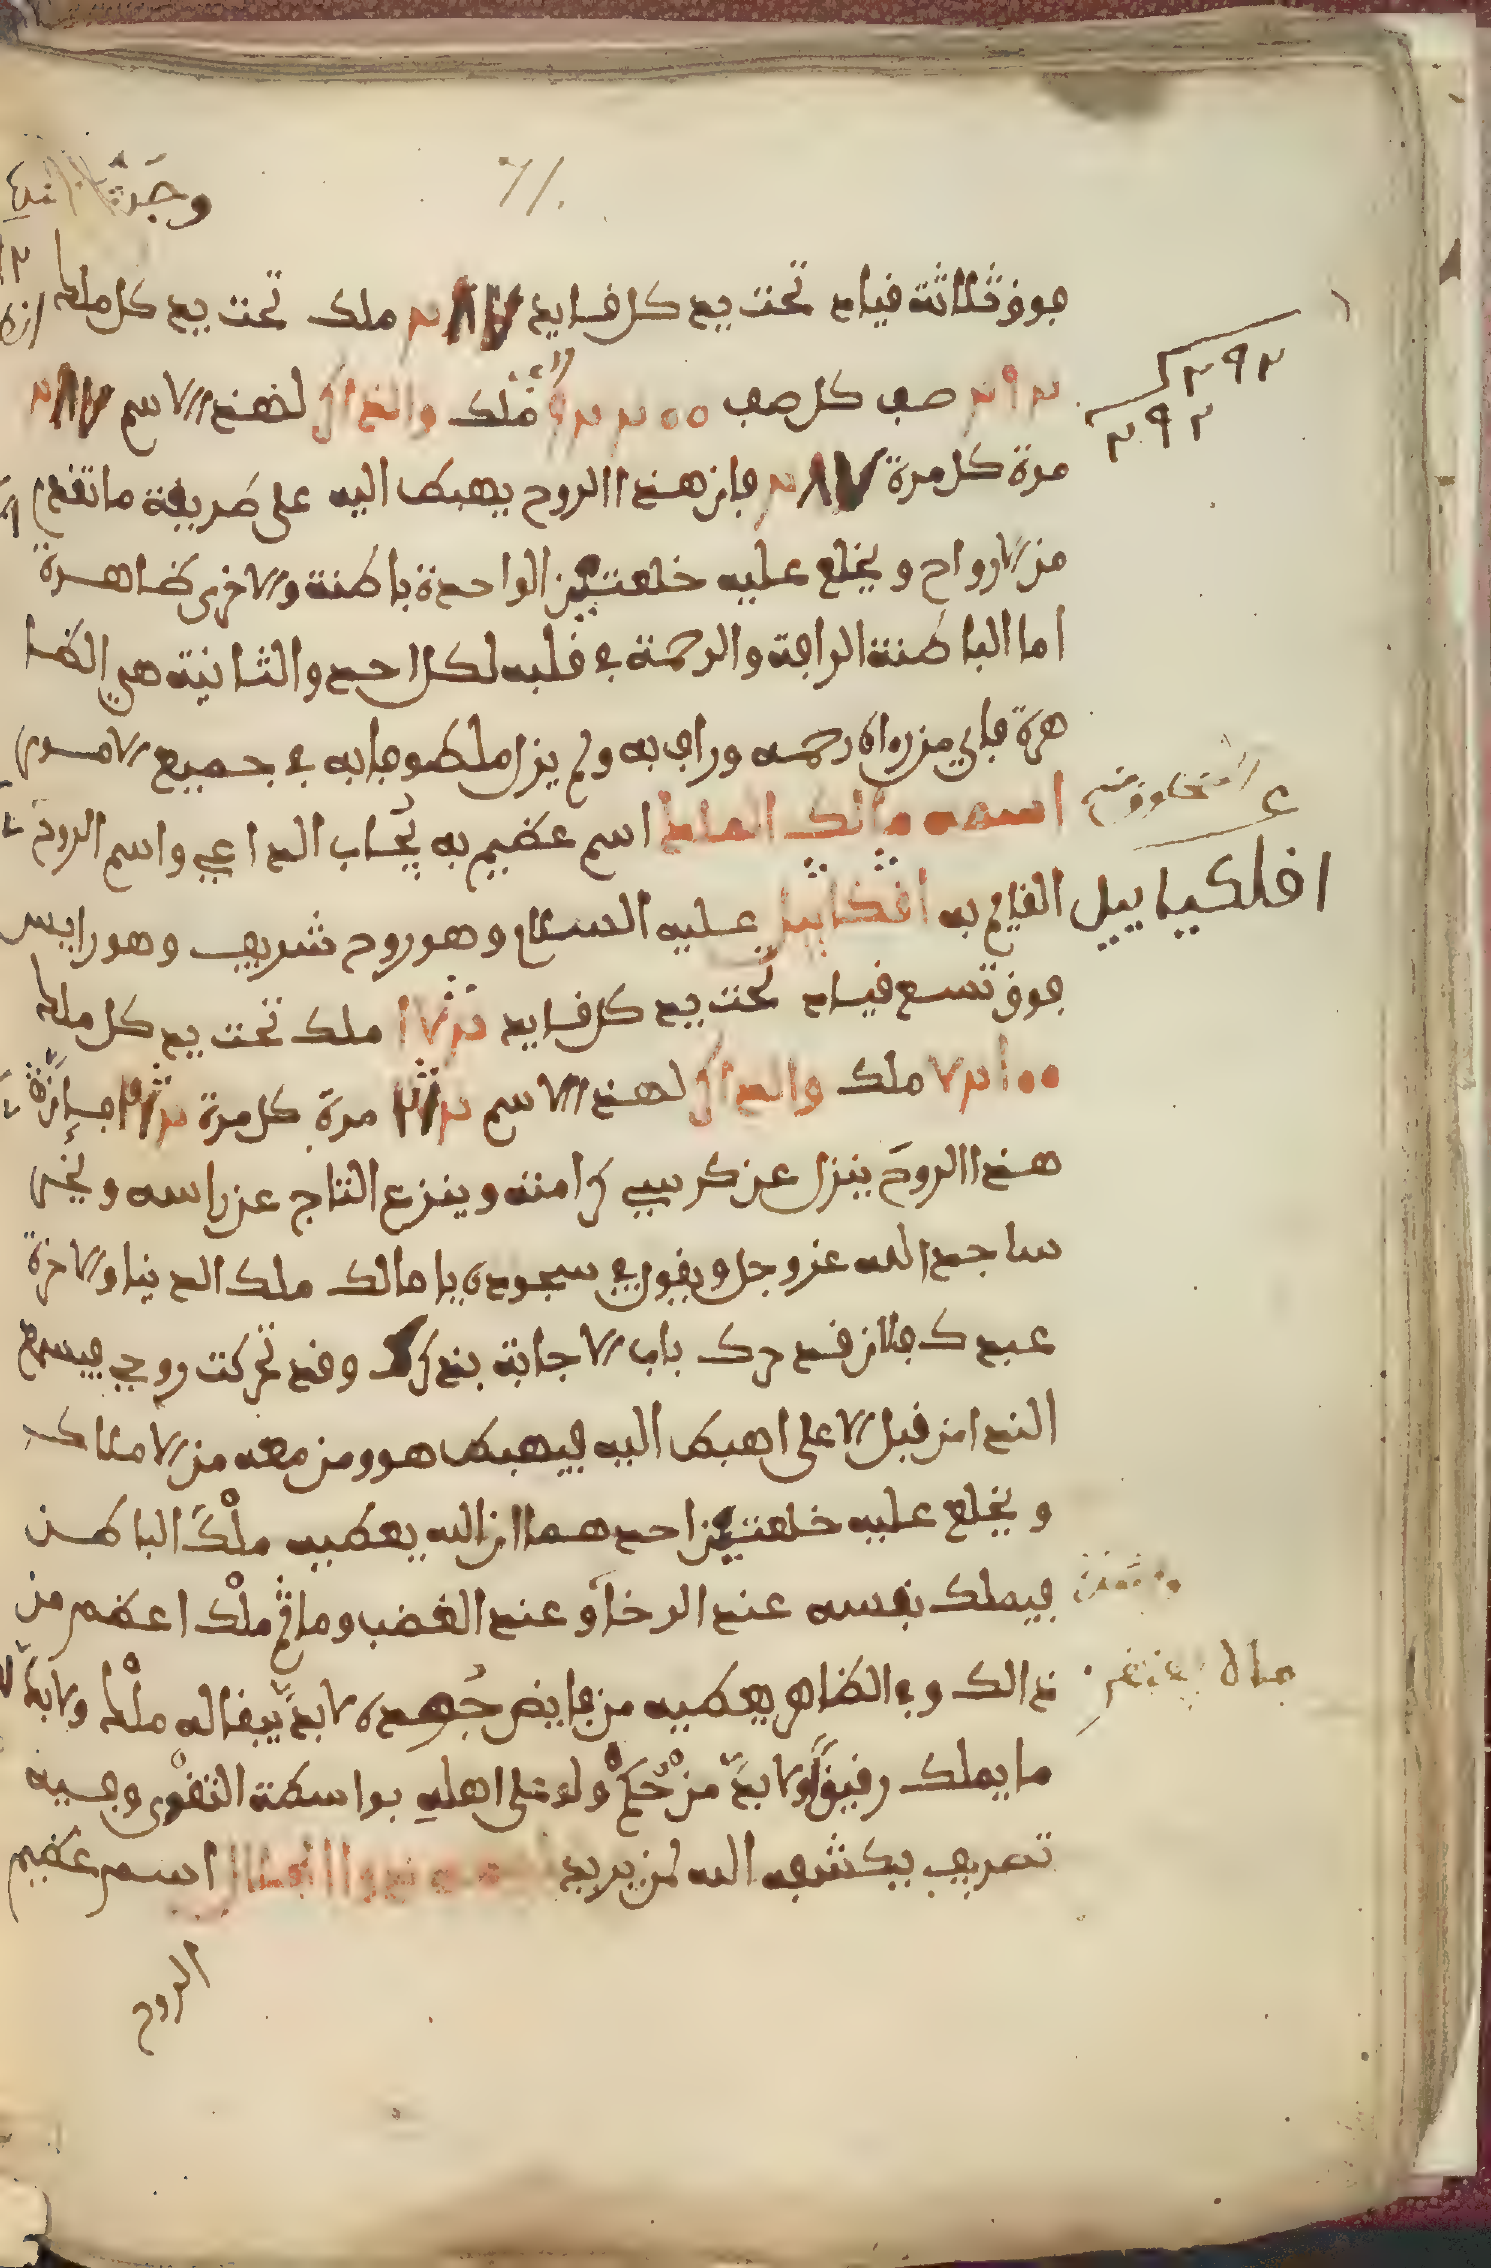 وجدت
فوق ثلاثة قياد تحت يد كل قايد ٢٨٧ ملك تحت يد كل ملك
٢٩٢ صف كل صف ملك والذاكر لهذا الاسم ٢٨٧
مرة كل مرة ٢٨٧ فان هذا الروح يهبط اليه على طريقة ما تقدم
من الارواح ويخلع عليه خلعتين الواحدة باطنة والاخرى ظاهرة
اما الباطنة الرافة والرحمة في قلبه لكل احد والثانية هي الظا
هرة فاي من رءاه رحمه وراف به ولم يزل ملطوفا به في جميع الامور
اسمه مالك الملك اسم عظيم به يجاب الداعي واسم الروح
القايم به عليه السلام وهو روح شريف وهو رايس
افلكيياييل
فوق تسع قياد تحت يد كل قايد ملك تحت يد كل ملك
ملك والذاكر لهذا الاسم مرة كل مرة فان
هذا الروح ينزل عن كرسي كرامته وينزع التاج عن راسه ويخر
ساجدا لله عز وجل ويقول في سجوده يا مالك ملك الدنيا والاخرة
عبدك فلان قد حرك باب الاجابة بذكرك وقد تحركت روحي فيسمع
الندا من قبل الاعلى اهبط اليه فيهبط هو ومن معه من الاملاك
ويخلع عليه خلعتين احدهما ان الله يعطيه ملك الباطن
فيملك نفسه عند الرخا وعند الغضب وما ثم ملك اعظم من
ذالك وفي الظاهر يعطيه من فايض جهده لا بد يبقا له ملك ولا بد
ما يملك رقيق ولا بد من حكم ولو على اهله بواسطة التقوى وفيه
تصريف يكشفه الله لمن يريد اسم عظيم
الروح
٢٩٢
٢٩٢